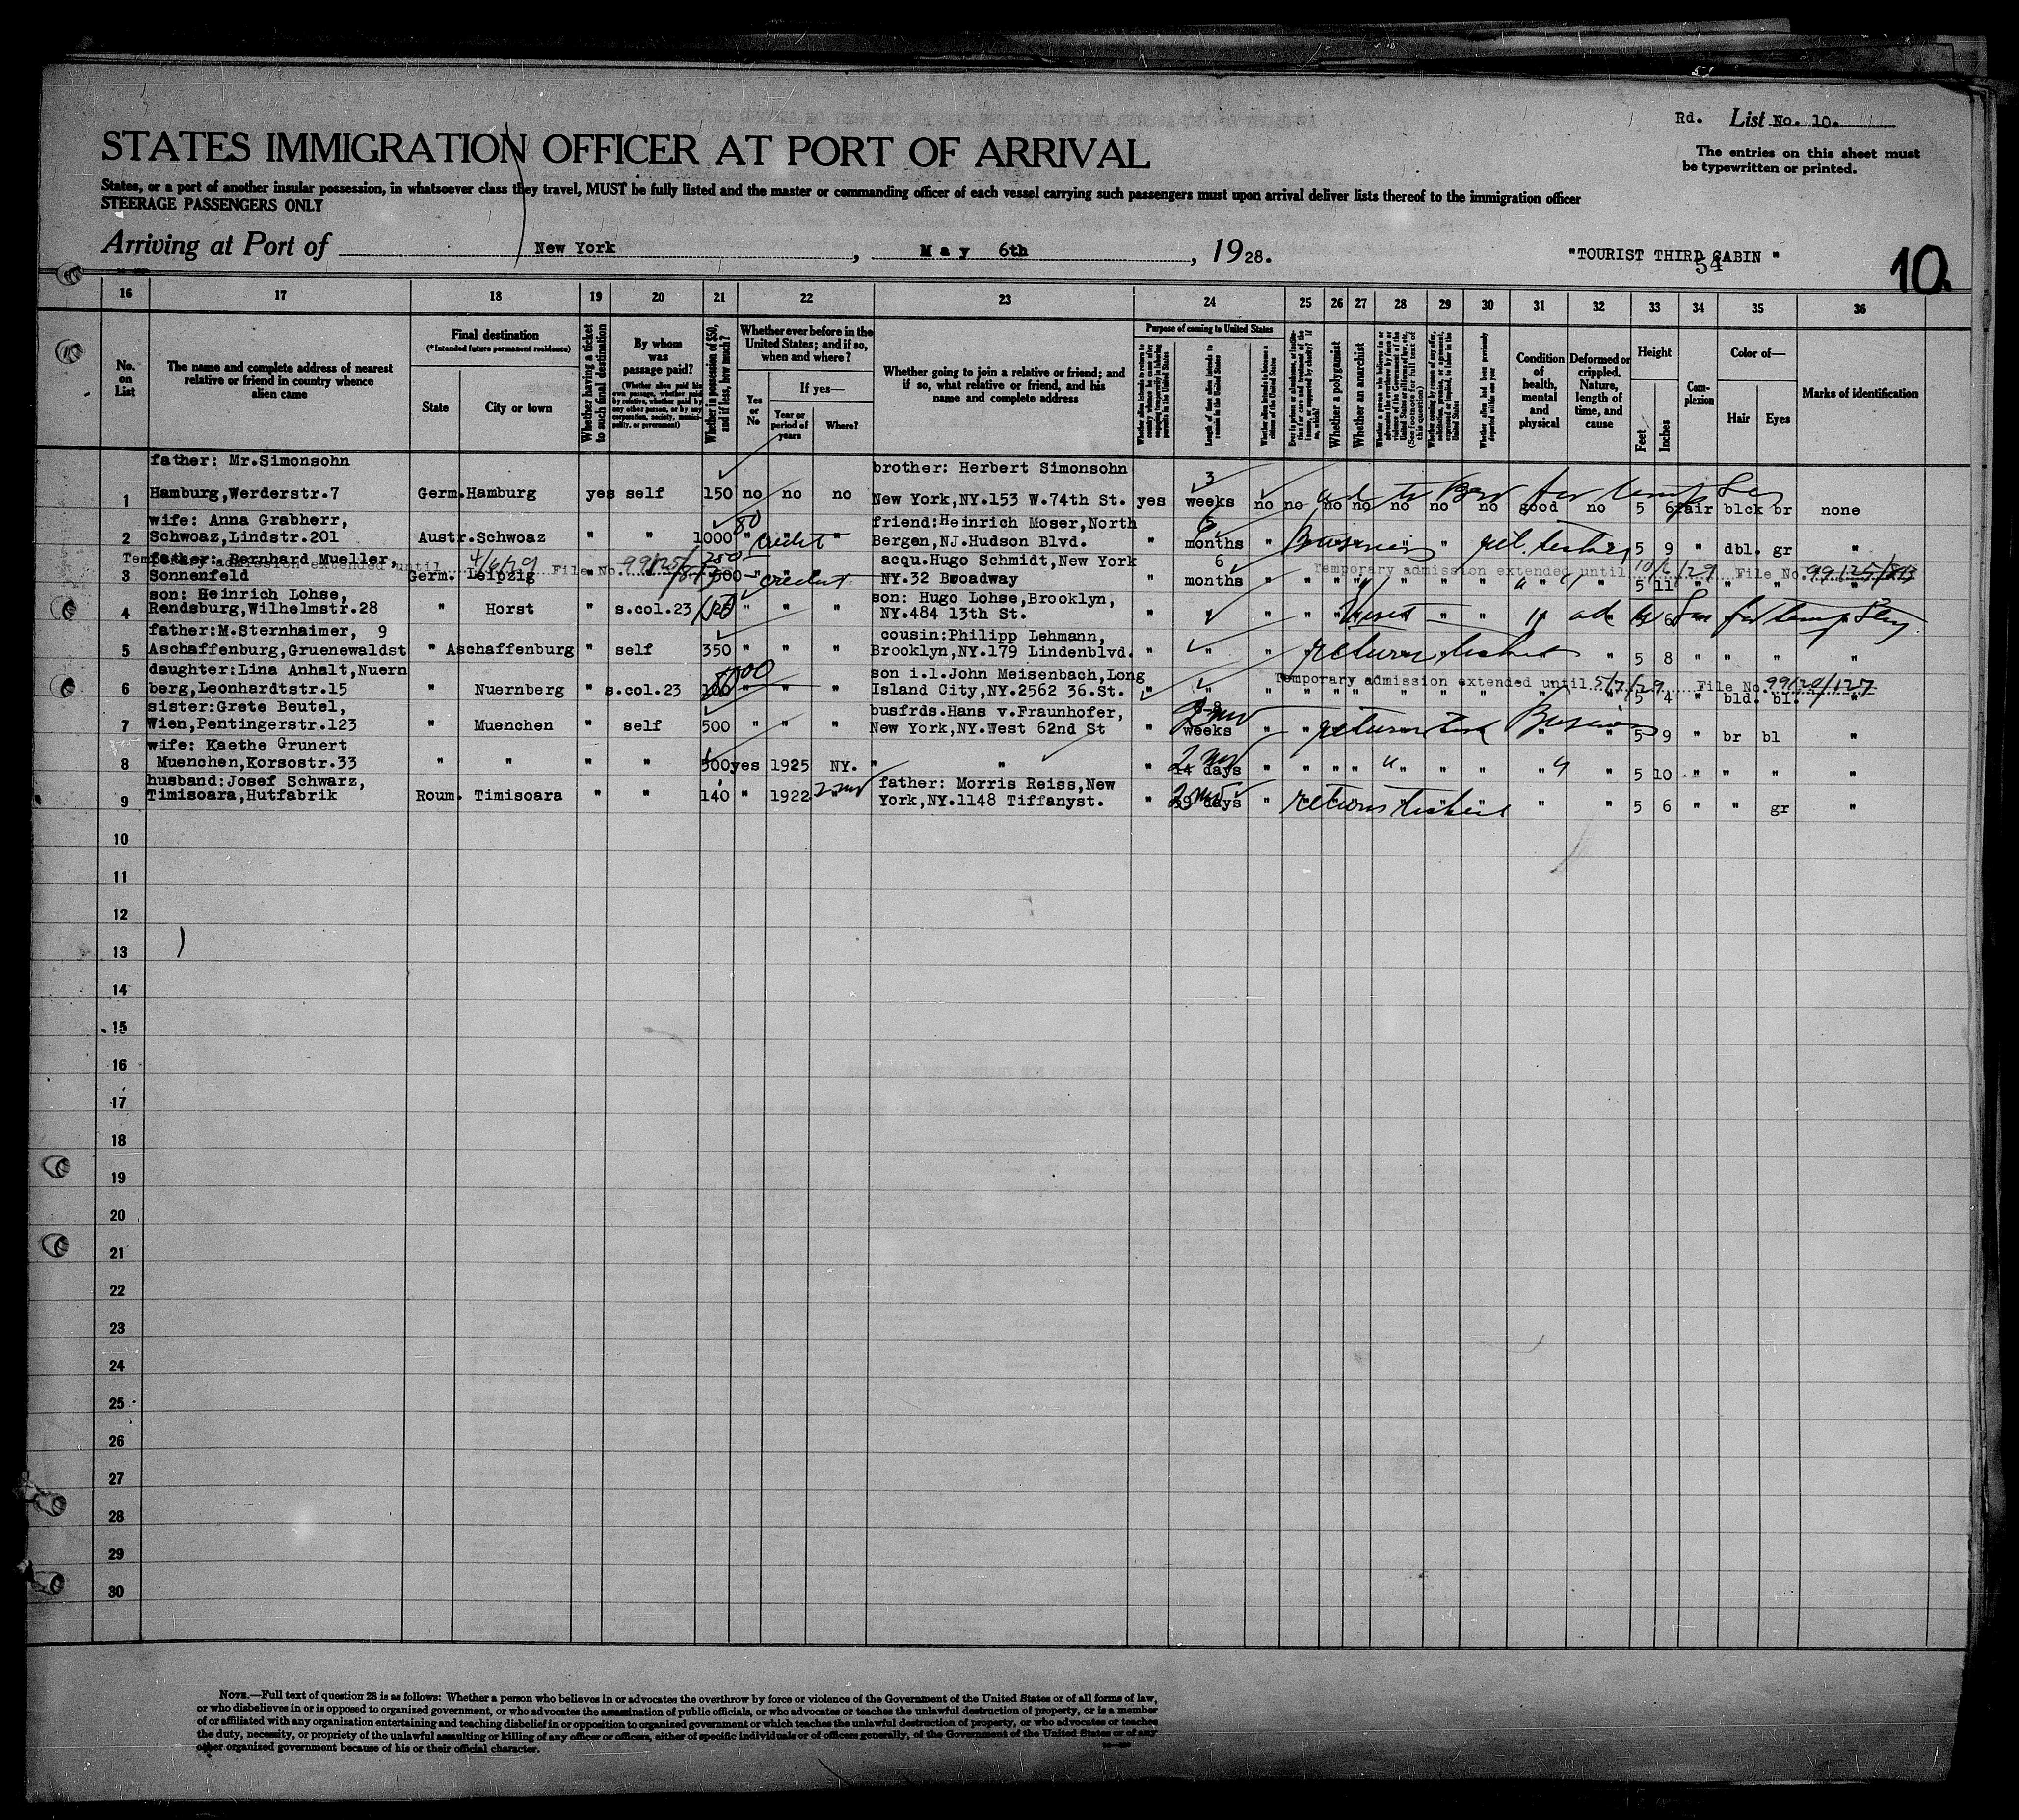 Rd. List No. 10.
The entries on this sheet must
be typewritten or printed.
STATES IMMIGRATION OFFICER AT PORT OF ARRIVAL
States, or a port of another insular possession, in whatsoever class they travel, MUST be fully listed and the master or commanding officer of each vessel carrying such passengers must upon arrival deliver lists thereof to the immigration officer
STEERAGE PASSENGERS ONLY
Arriving at Port of New York, May 6th, 1928.
"TOURIST THIRD CABIN "
54
10.
16 17 18 19 20 21 22 23 24 25 26 27 28 29 30 31 32 33 34 35 36
No. on List
The name and complete address of nearest relative or friend in country whence alien came
Final destination
(*Intended future permanent residence)
State
City or town
Whether having a ticket to such final destination
By whom was passage paid?
(Whether alien paid his own passage, whether paid by relative, whether paid by any other person, or by any corporation, society, municipality, or government)
Whether in possession of $50, and if less, how much?
Whether ever before in the United States; and if so, when and where?
Yes or No
If yes—
Year or period of years
Where?
Whether going to join a relative or friend; and if so, what relative or friend, and his name and complete address
Purpose of coming to United States
Length of time alien intends to remain in the United States
Whether alien intends to become a citizen of the United States
Whether a polygamist
Whether an anarchist
(See footnote for full text of this question)
Whether alien had been previously deported within one year
Condition of health, mental and physical
Deformed or crippled. Nature, length of time, and cause
Height
Feet
Inches
Complexion
Color of—
Hair
Eyes
Marks of identification
father: Mr.Simonsohn brother: Herbert Simonsohn 3
1 Hamburg,Werderstr.7 Germ. Hamburg yes self 150 no no no New York,NY.153 W.74th St. yes weeks no no no no no no no good no 5 6 fair blck br none
wife: Anna Grabherr, 80 friend:Heinrich Moser,North 6
2 Schwoaz,Lindstr.201 Austr. Schwoaz " " 1000 " credit " Bergen,NJ.Hudson Blvd. " months " Business " 5 9 " dbl. gr "
father: Bernhard Mueller, acqu.Hugo Schmidt,New York 6
Temporary admission extended until 4/6/29 File No. 99125/
Temporary admission extended until 10/6/29 File No. 99125/813
3 Sonnenfeld Germ. Leipzig " 500 credit NY.32 Broadway " months " " " " " " 5 11 " " " "
son: Heinrich Lohse, son: Hugo Lohse,Brooklyn,
4 Rendsburg,Wilhelmstr.28 " Horst " s.col.23 " " " NY.484 13th St. " " " 6
father:M.Sternhaimer, 9 cousin:Philipp Lehmann,
5 Aschaffenburg,Gruenewaldst " Aschaffenburg " self 350 " " " Brooklyn,NY.179 Lindenblvd. " " " return ticket " 5 8 " " " "
daughter:Lina Anhalt,Nuern son i.l.John Meisenbach,Long
Temporary admission extended until 5/7/29 File No. 99120/127
6 berg,Leonhardtstr.15 " Nuernberg " s.col.23 100 " " " Island City,NY.2562 36.St. " " " " " " 5 4 " bld. bl. "
sister:Grete Beutel, busfrds.Hans v.Fraunhofer,
7 Wien,Pentingerstr.123 " Muenchen " self 500 " " " New York,NY.West 62nd St " weeks " " return Business " 5 9 " br bl "
wife: Kaethe Grunert 2 mo
8 Muenchen,Korsostr.33 " " " " 500 yes 1925 NY. " " " 14 days " " " " " " " " " 5 10 " " " "
husband:Josef Schwarz, father: Morris Reiss,New 2 mo
9 Timisoara,Hutfabrik Roum. Timisoara " " 140 " 1922 " York,NY.1148 Tiffanyst. " 29 days " return ticket " " 5 6 " " gr "
10
11
12
13
14
15
16
17
18
19
20
21
22
23
24
25
26
27
28
29
30
NOTE.—Full text of question 28 is as follows: Whether a person who believes in or advocates the overthrow by force or violence of the Government of the United States or of all forms of law,
or who disbelieves in or is opposed to organized government, or who advocates the assassination of public officials, or who advocates or teaches the unlawful destruction of property, or is a member
of or affiliated with any organization entertaining and teaching disbelief in or opposition to organized government or which teaches the unlawful destruction of property, or who advocates or teaches
the duty, necessity, or propriety of the unlawful assaulting or killing of any officer or officers, either of specific individuals or of officers generally, of the Government of the United States or of any
other organized government because of his or their official character.